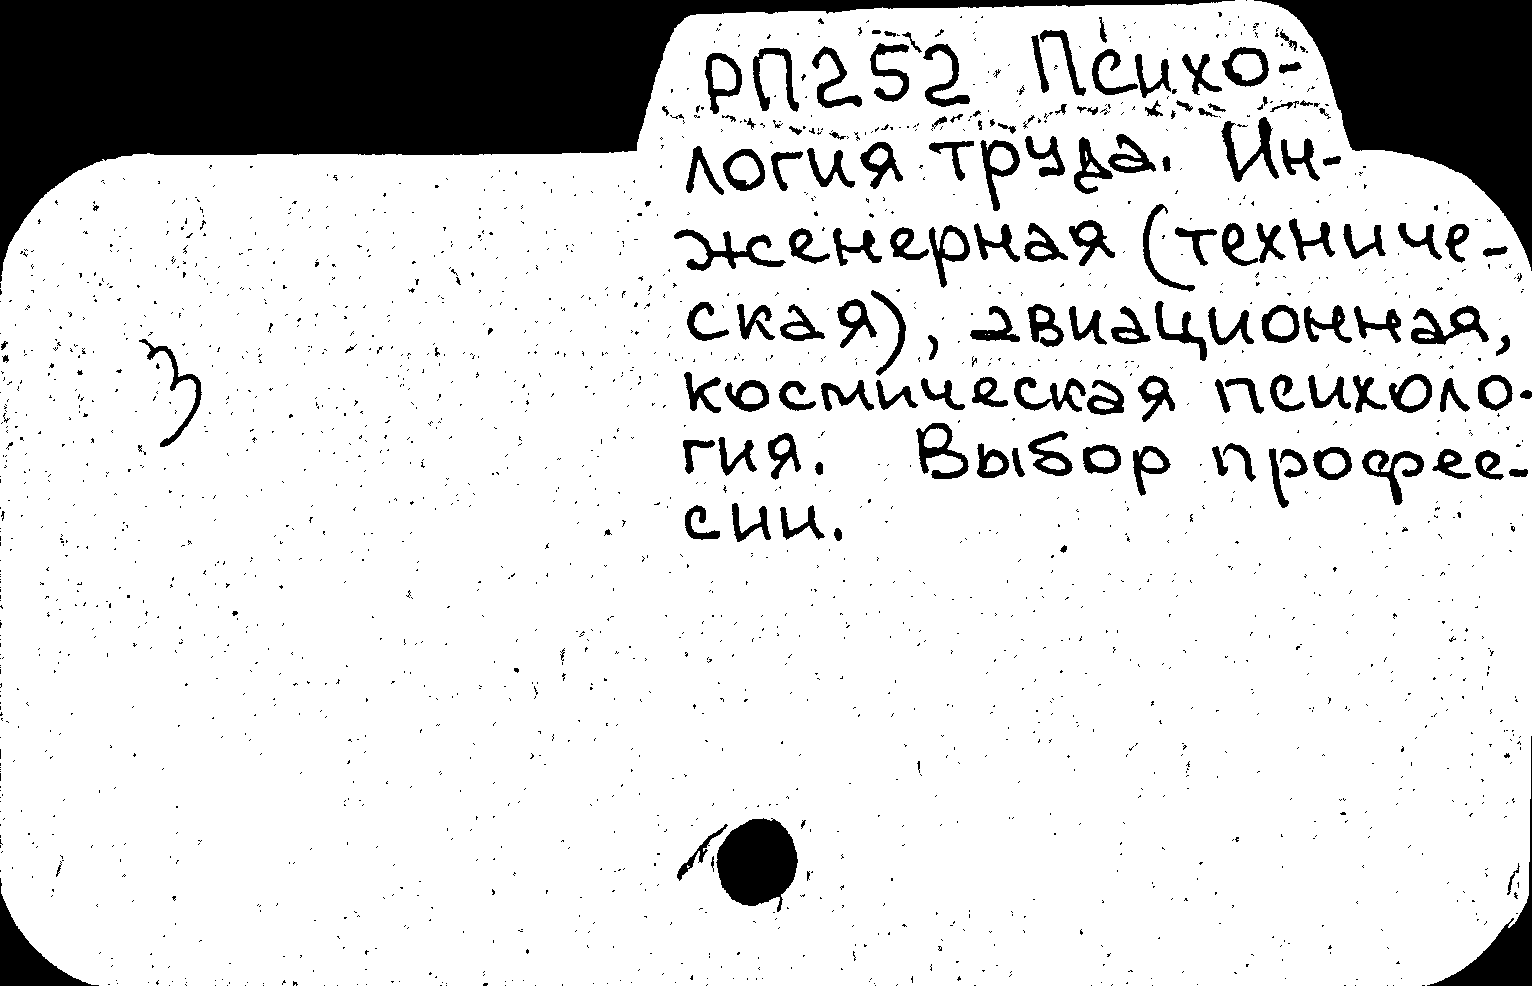 РП252 Психо-
логия труда. Ин-
женерная (техниче-
ская), авиационная,
космическая психоло-
гия. Выбор профес-
сии.
3